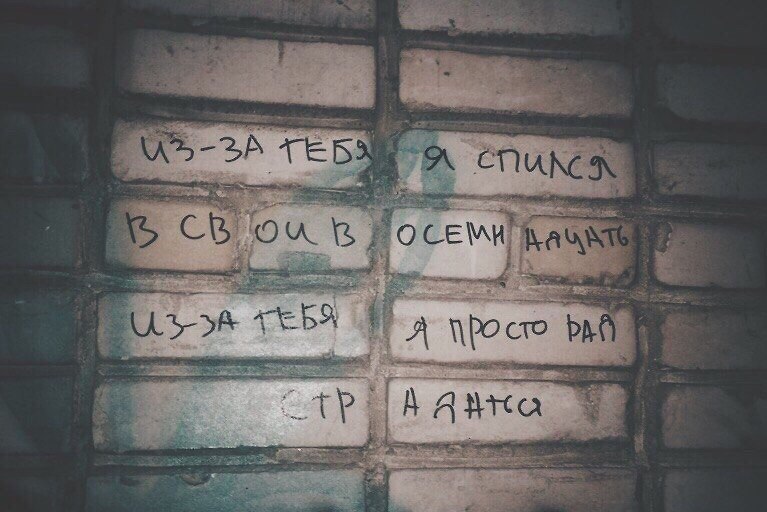 ИЗ-ЗА ТЕБЯ Я СПИЛСЯ
В СВОИ ВОСЕМНАДЦАТЬ
ИЗ-ЗА ТЕБЯ Я ПРОСТО
СТРАДАНИЯ